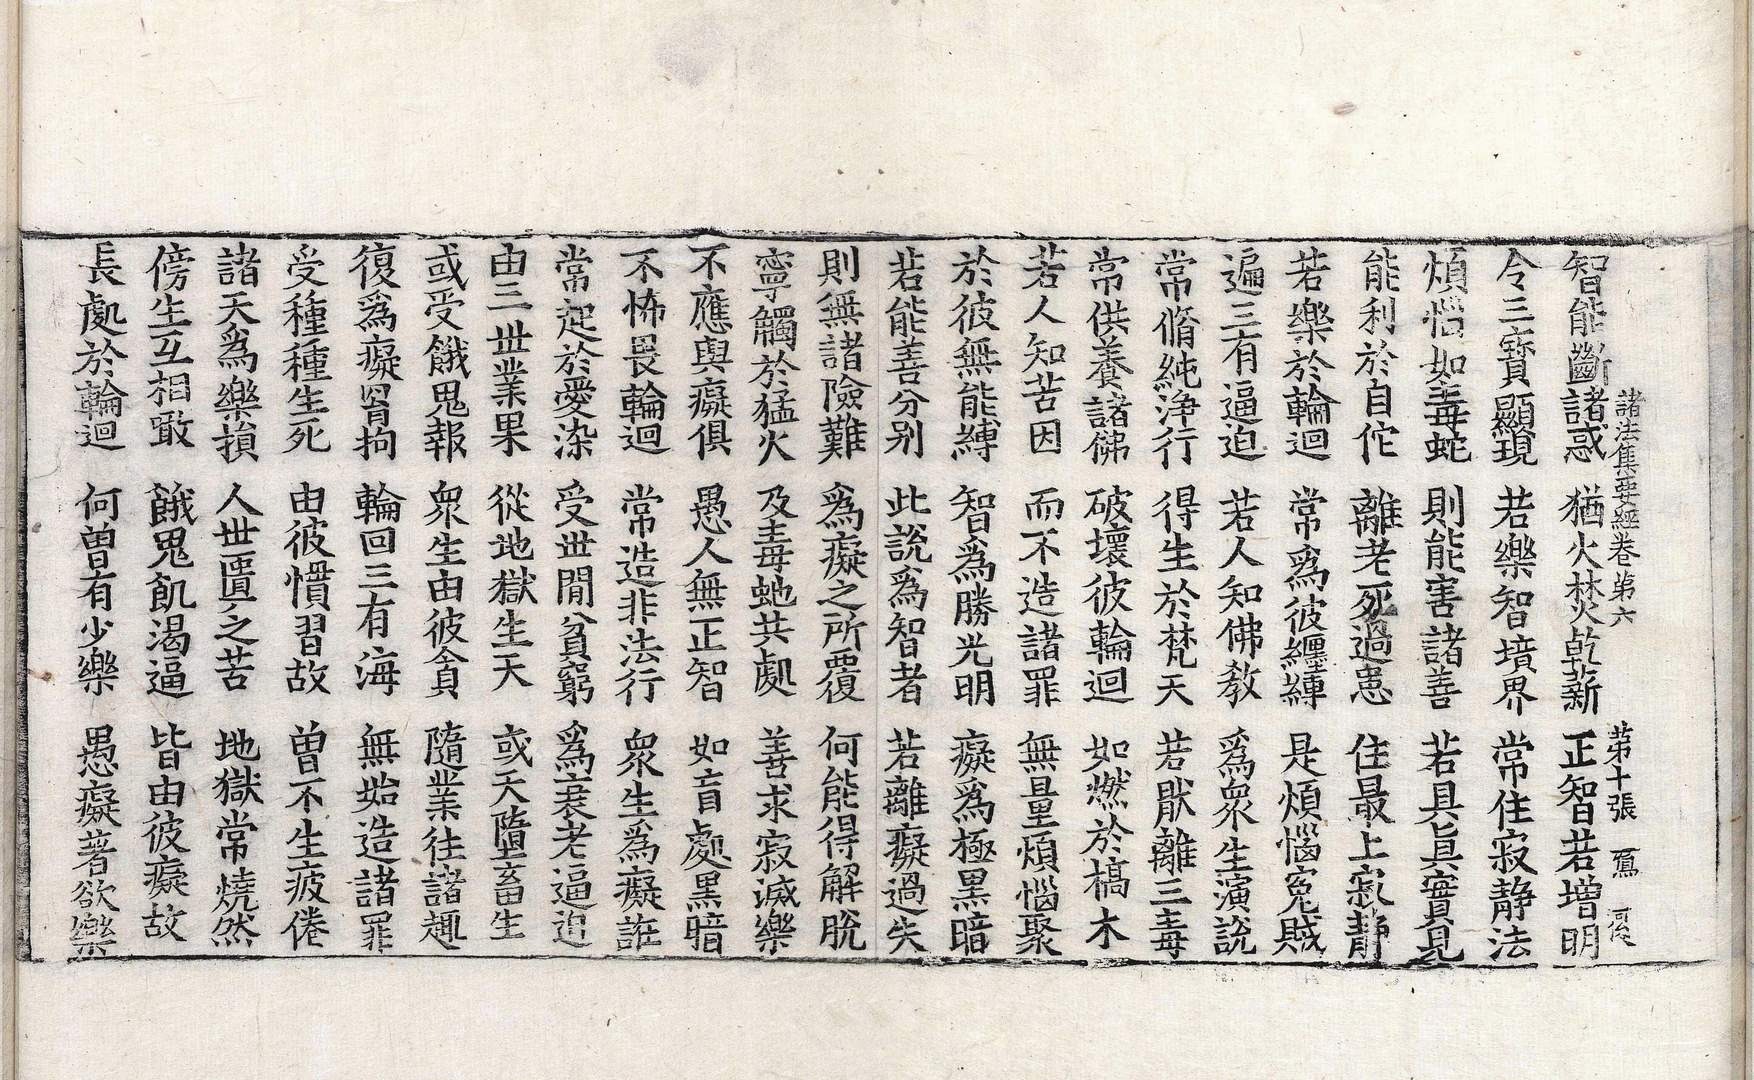 諸法集要經卷第六　第十張　鴈
智能斷諸惑　猶火焚乾薪　正智若增明
令三寶顯現　若樂智境界　常住寂靜法
煩惱如毒蛇　則能害諸善　若具眞實見
能利於自佗　離老死過患　住最上寂靜
若樂於輪迴　常爲彼纏縛　是煩惱寃賊
遍三有逼迫　若人知佛教　爲衆生演說
常脩純淨行　得生於梵天　若猒離三毒
常供養諸佛　破壞彼輪迴　如燃於槁木
若人知苦因　而不造諸罪　無量煩惱聚
於彼無能縛　智爲勝光明　癡爲極黑暗
若能善分別　此說爲智者　若離癡過失
則無諸險難　爲癡之所覆　何能得解脫
寧觸於猛火　及毒虵共處　善求寂滅樂
不應與癡俱　愚人無正智　如盲處黑暗
不怖畏輪迴　常造非法行　衆生爲癡誑
常起於愛染　受世間貧窮　爲衰老逼迫
由三世業果　從地獄生天　或天墮畜生
或受餓鬼報　衆生由彼貪　隨業往諸趣
復爲癡罥拘　輪回三有海　無始造諸罪
受種種生死　由彼慣習故　曾不生疲倦
諸天爲樂損　人世匱乏苦　地獄常燒然
傍生互相噉　餓鬼飢渴逼　皆由彼癡故
長處於輪迴　何曾有少樂　愚癡著欲樂